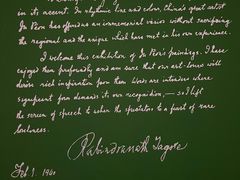 in its accent. In rhythmic line and colour, China's great artist
Ju Péon has offered us an immemorial vision without sacrificing
the regional and the unique which has met in his own experience.
I welcome this exhibition of Ju Péon's paintings. I have
enjoyed them profoundly and am sure that our art-lovers will
derive rich inspiration from them. Words are intruders where
significant form demands its own recognition, — so I lift
the screen of speech to usher the spectators to a feast of rare
loveliness.
Rabindranath Tagore
Feb 1. 1940